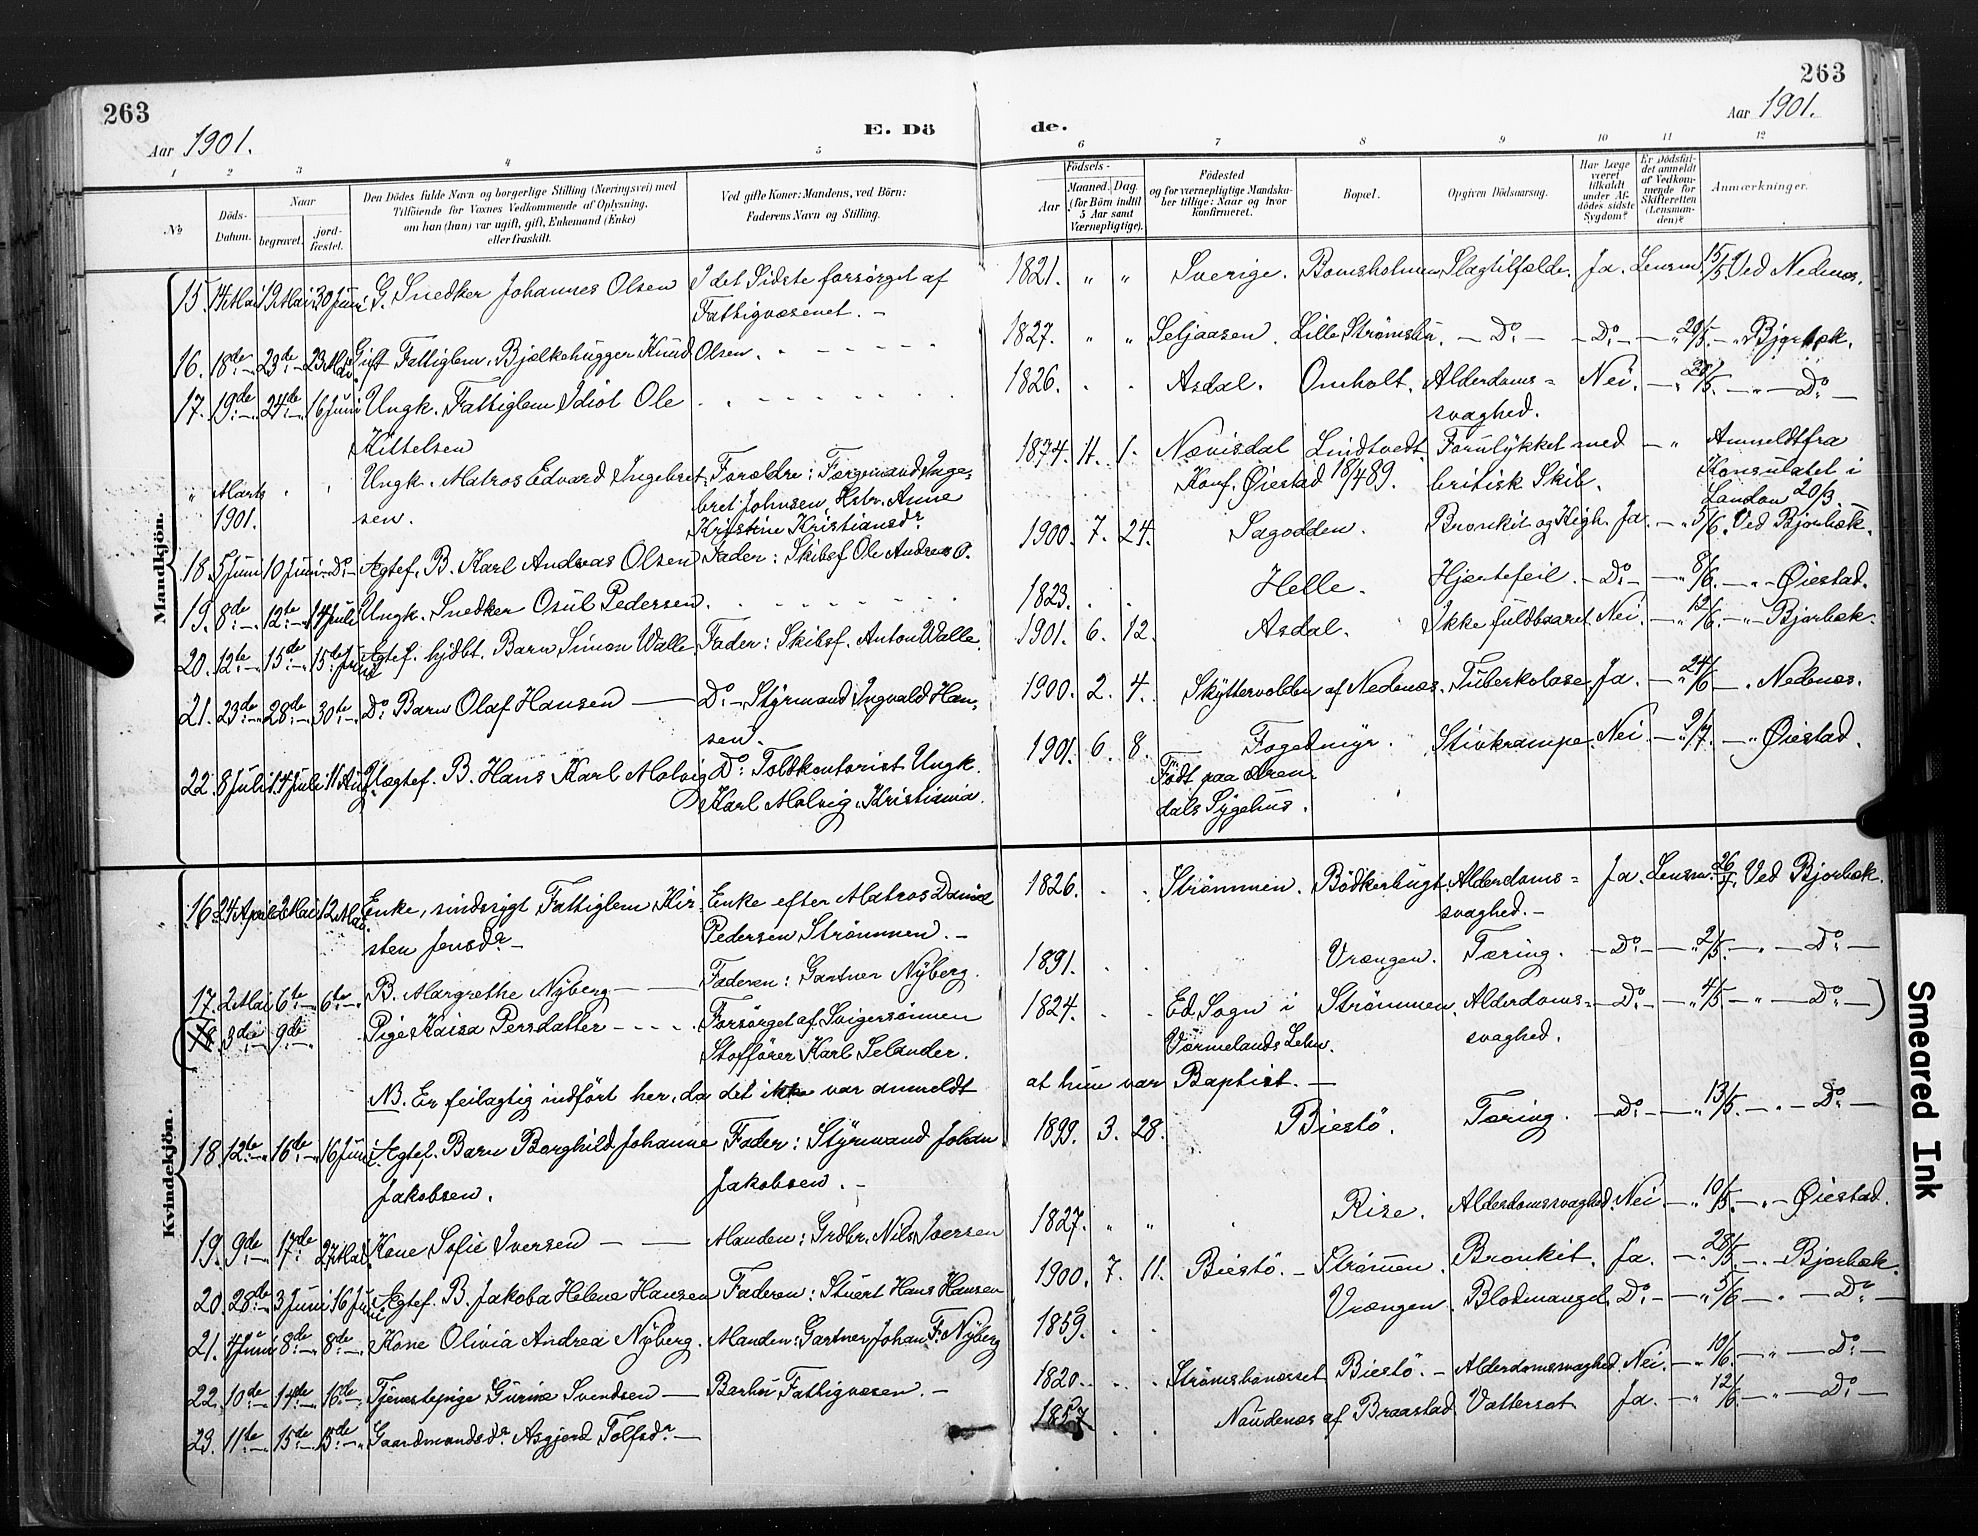 263
Aar 1901.
E. Dö
de.
263
Aar 1901.
1 2 3 4 5 6 7 8 9 10 11 12
№
Döds-Datum.
Naar
begravet.
jord-fæstet.
Den Dödes fulde Navn og borgerlige Stilling (Næringsvei) med
Tilföiende for Voxnes Vedkommende af Oplysning,
om han (hun) var ugift, gift, Enkemand (Enke)
eller fraskilt.
Ved gifte Koner: Mandens, ved Börn:
Faderens Navn og Stilling.
Födsels-
Aar
Maaned. Dag.
(for Börn indtil
5 Aar samt
Værnepligtige).
Födested
og for værnepligtige Mandska-
ber tillige: Naar og hvor
konfirmeret.
Bopæl.
Opgiven Dödsaarsag.
Har Læge
været
tilkaldt
under Af-
dödes sidste
Sygdom?
Er Dödsfal-
det anmeldt
af Vedkom-
mende for
Skifteretten
(Lensman-
den)?
Anmærkninger.
Mandkjön.
15. 14 Mai 19 Mai 30 Juni G. Snedker Johannes Olsen I det Sidste forsörget af 1821. " " Sverige. Bomsholmen Slagtilfælde. Ja. Lensm. 15/5 Ved Nedenæs.
Fattigvæsenet. -
16. 18de 23de 23 Mai Gift Fattiglem. Bjælkehugger Knud Olsen. 1827. " " Seljaasen. Lille Strømsbu. - Do - - Do - - " 20/5 - " Bjorbæk.
17. 19de 24de 16 Juni Ungk. Fattiglem Idiot Ole 1826. Asdal. Omholt. Alderdoms= Nei. - " 20/5 - " - Do -
Kittelsen svaghed.
" Marts Ungk. Matros Edvard Ingebret- Forældre: Færgemand Inge- 1874. 11. 1. Nævisdal Lindtvedt. Forulykket med - " Anmeldt fra
1901. sen. bret Johnsen, Hstr. Anne Konf. Øiestad 18/4 89. britisk Skib. Konsulatet i
Kristine Kristiansdr. London 20/3. -
18. 5 Juni 10 Juni - Do - Ægtef. B. Karl Andreas Olsen Fader: Skibsf. Ole Andreas O. 1900. 7. 24. Sagodden. Bronkit og Kigh. Ja. - " 5/6. Ved Bjorbæk.
19. 8de 12te 14 Juli Ungk. Snedker Osul Pedersen. 1823. Helle. Hjertefeil. - Do - - " 8/6. - " - Øiestad.
20. 12te 15de 15de Juni Ægtef. hjdbt. Barn Simon Walle. Fader: Skibsf. Anton Walle. 1901. 6. 12. Asdal. Ikke fuldbaaret Nei. - " 12/6. - " - Bjorbæk.
21. 23de 28de 30te Do Barn Olaf Hansen Do - Styrmand Ingvald Han- 1900. 2. 4. Skyttervolden af Nedenæs. Tuberkolose Ja. - " 24/6 - " Nedenæs.
sen.
22. 8 Juli 14 Juli 11 Aug. Uægtef. B. Hans Karl Molvig Do: Toldkontorist Ungk. 1901. 6. 8. Fogedmyr. Stivkrampe. Nei. - " 9/7. - " Øiestad.
Karl Molvig, Kristiania. Födt paa Aren-
dals Sygehus.
Kvindekjön.
16. 24 April 2 Mai 12 Mai Enke, sindssygt Fattiglem Kir- Enke efter Matros Daniel 1826. Strømmen. Bödkerbugt. Alderdoms= Ja. Lensm. 26/4. Ved Bjorbæk.
sten Jensdr - Pedersen Strømmen. - svaghed. -
17. 2 Mai 6te 6te B. Margrethe Nyberg Faderen: Gartner Nyberg. 1891. Vrængen. Tæring. - Do - - " 2/5 - " - Do -
18 3die 9de Pige Kaisa Persdatter Forsörget af Svigersönnen 1824. Ed Sogn i Strömmen. Alderdoms= - Do - - " 4/5 - " - Do -)
Stofförer Karl Selander. Værmelands Lehn. svaghed.
NB. Er feilagtig indfört her, da det ikke var anmeldt at hun var Baptist. -
18. 12te 16de 16 Juni Ægtef. Barn Borghild Johanne Fader: Styrmand Johan 1899. 3. 28. Biestö. Tæring. - Do - - " 13/5. - " - Do -
Jakobsen. Jakobsen. -
19. 9de 17de 27 Mai Kone Sofie Iversen Manden: Grdbr. Nils Iversen 1827. " " Rise. Alderdomssvaghed. Nei. - " 10/5. - " - Øiestad.
20. 28de 3 Juni 16 Juni Ægtef. B. Jakoba Helene Hansen Faderen: Stuert Hans Hansen 1900. 7. 11. Biestö. - Strömmen. Bronkit. Ja. - " 28/5. - " Bjorbæk.
21. 4 Juni 8de 8de Kone Olivia Andrea Nyberg. Manden: Gartner Johan F. Nyberg 1859. Vrængen. Blodmangel. Do - - " 5/6 - " - Do -
22. 10de 14de 16de Tjenestepige Gurine Svendsen - Barbu Fattigvæsen. - 1820. Strømsbuneset Biestö. - Alderdomssvaghed. Nei. - " 10/6. - " - Do -
23. 11te 15de 15de Gaardmandsdr Asgjerd Tolfsdr - 1857. Naudenæs af Braastad. Vattersot. Ja. - " 12/6 - " - Do -
Smeared Ink